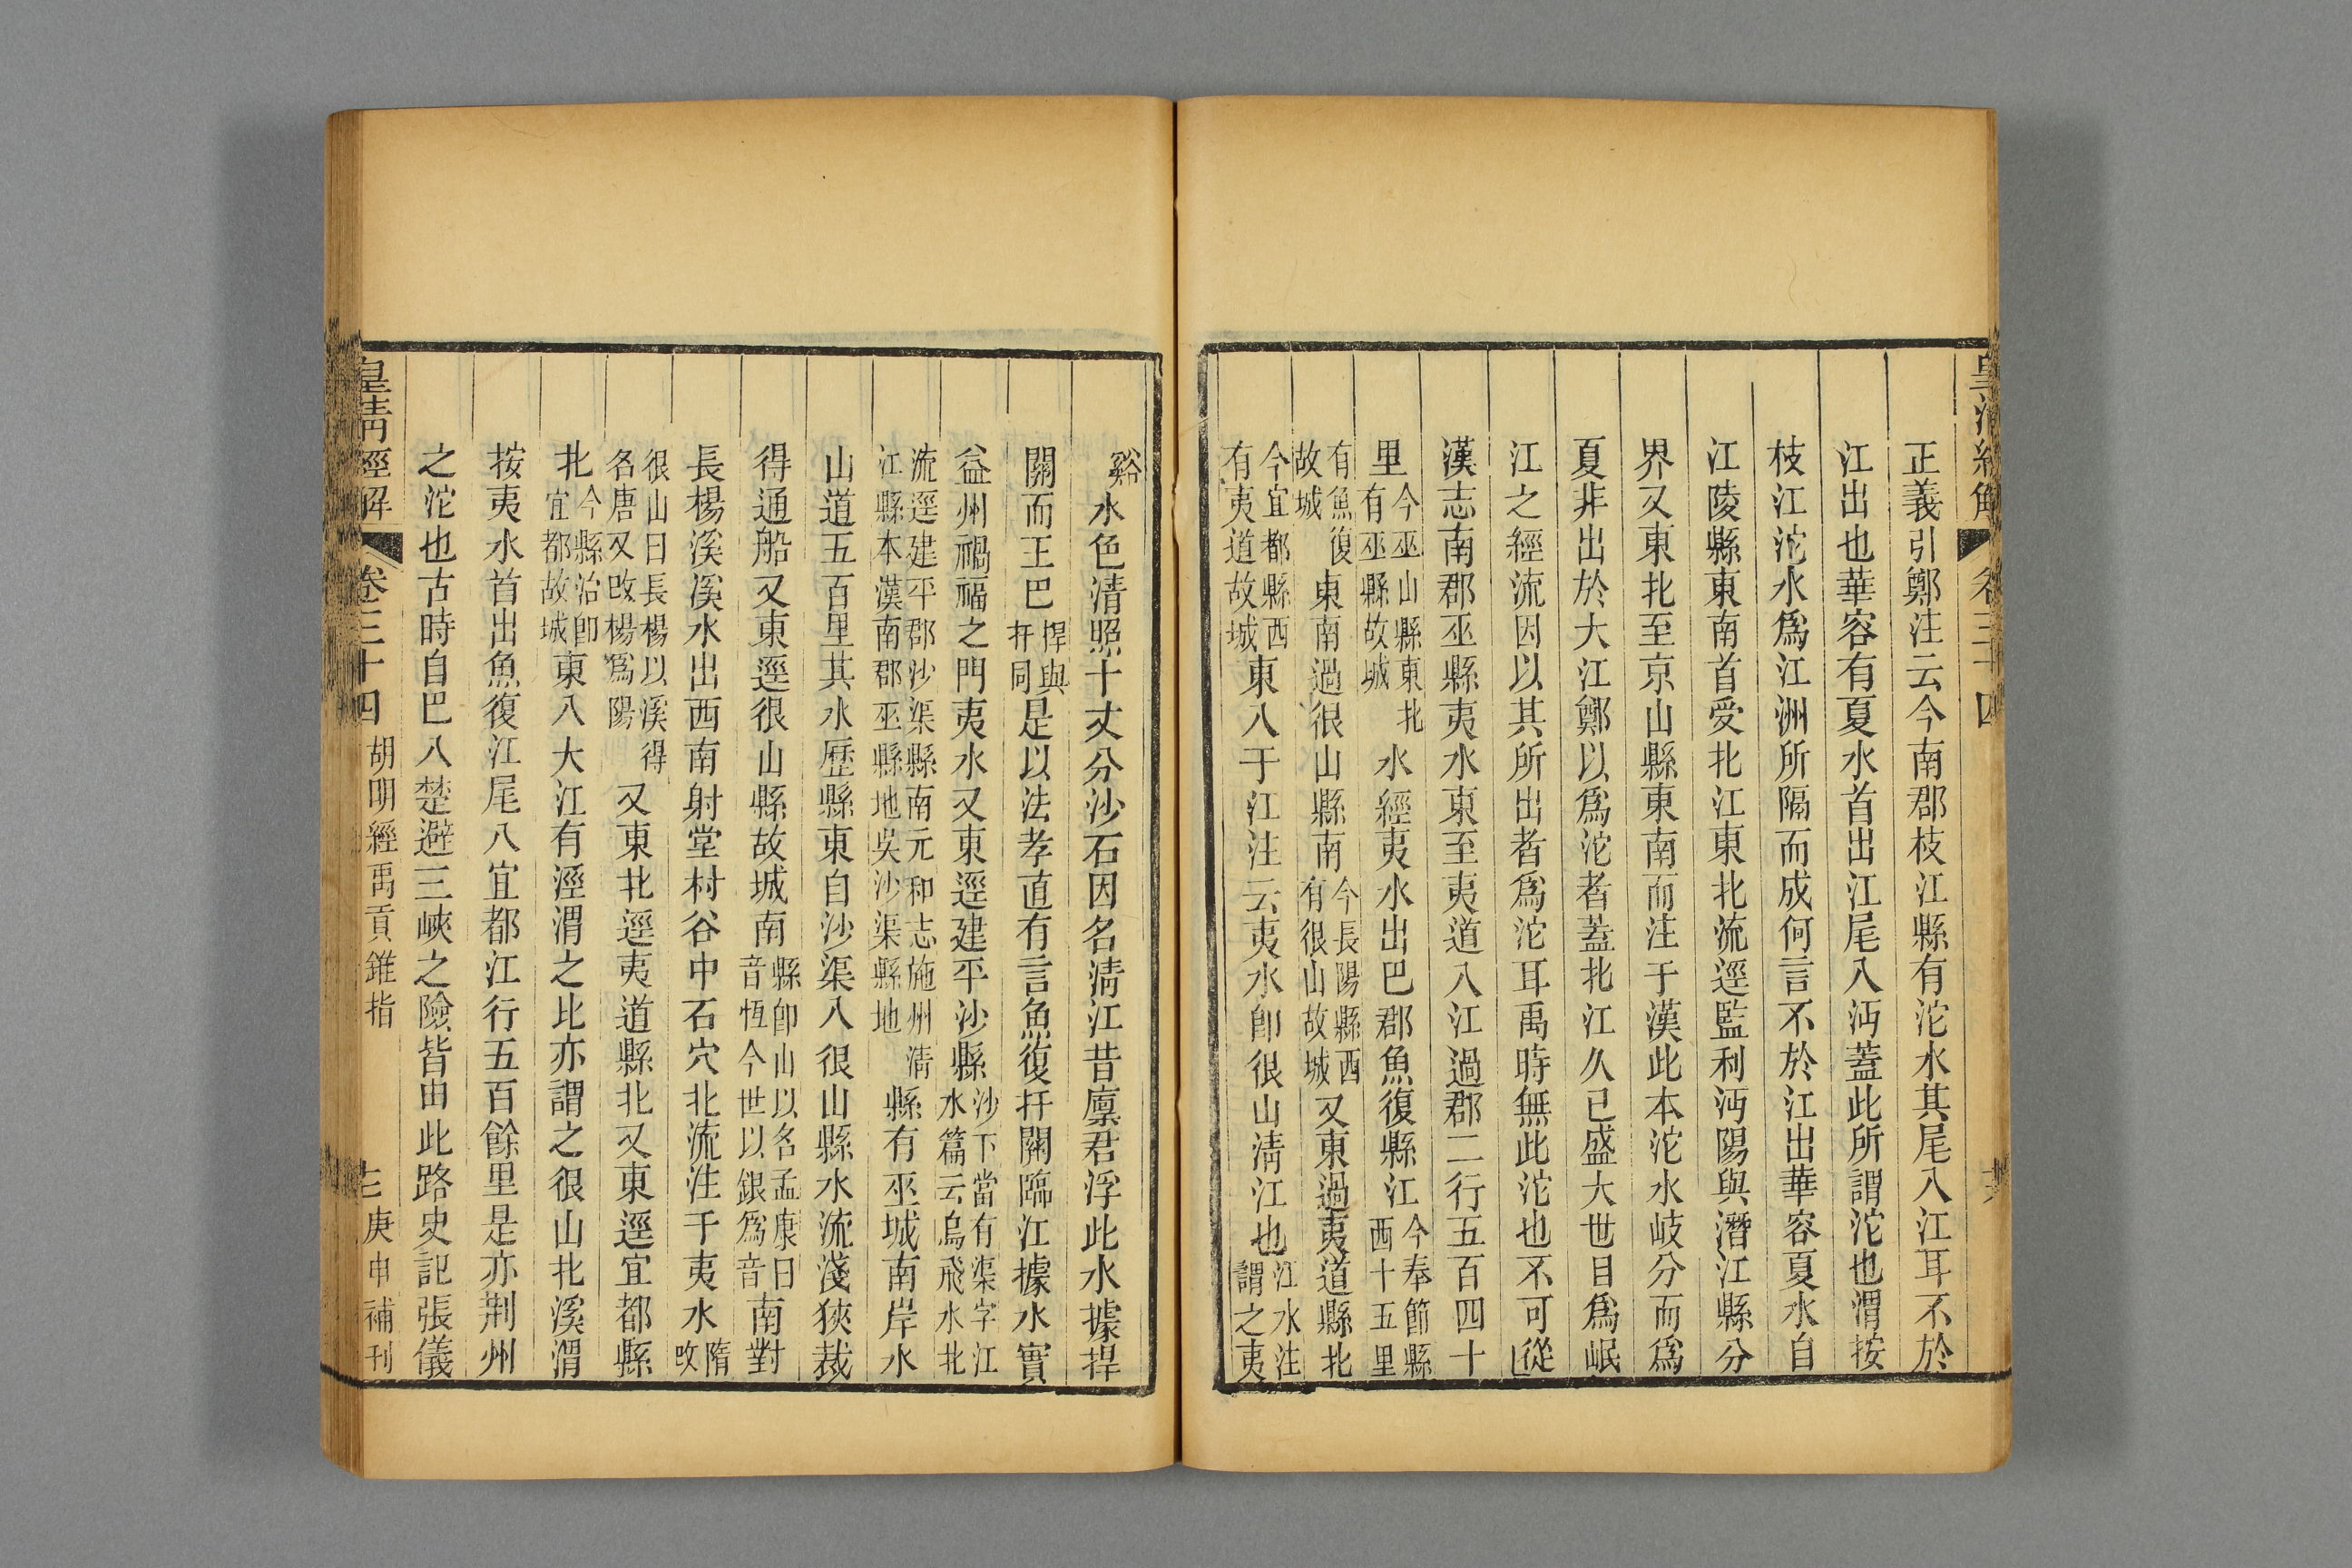 皇清經解 卷三十四
正義引鄭注云今南郡枝江縣有沱水其尾入江耳不於
江出也華容有夏水首出江尾入沔蓋此所謂沱也渭按
枝江沱水爲江洲所隔而成何言不於江出華容夏水自
江陵縣東南首受北江東北流逕監利沔陽與潛江縣分
界又東北至京山縣東南而注于漢此本沱水岐分而爲
夏非出於大江鄭以爲沱者蓋北江久已盛大世目爲岷
江之經流因以其所出者爲沱耳禹時無此沱也不可從
漢志南郡巫縣夷水東至夷道入江過郡二行五百四十
里今巫山縣東北有巫縣故城水經夷水出巴郡魚復縣江今奉節縣西十五里
有魚復故城東南過很山縣南今長陽縣西有很山故城又東過夷道縣北
今宜都縣西有夷道故城東入于江注云夷水卽很山淸江也江水注謂之夷
谿水色清照十丈分沙石因名淸江昔廩君浮此水據捍
關而王巴捍與扞同是以法孝直有言魚復扞關臨江據水實
益州禍福之門夷水又東逕建平沙縣沙下當有渠字江水篇云烏飛水北
流逕建平郡沙渠縣南元和志施州淸江縣本漢南郡巫縣地吳沙渠縣地縣有巫城南岸水
山道五百里其水歷縣東自沙渠入很山縣水流淺狹裁
得通船又東逕很山縣故城南縣卽山以名孟康曰音恆今世以銀爲音南對
長楊溪溪水出西南射堂村谷中石穴北流注于夷水隋改
很山曰長楊以溪得名唐又改楊爲陽又東北逕夷道縣北又東逕宜都縣
北今縣治卽宜都故城東入大江有涇渭之比亦謂之很山北溪渭
按夷水首出魚復江尾入宜都江行五百餘里是亦荆州
之沱也古時自巴入楚避三峽之險皆由此路史記張儀
皇清經解 卷三十四 胡明經禹貢錐指 庚申補刊